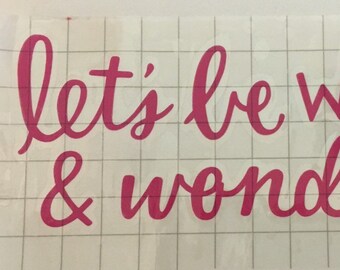 let's be w
& wond